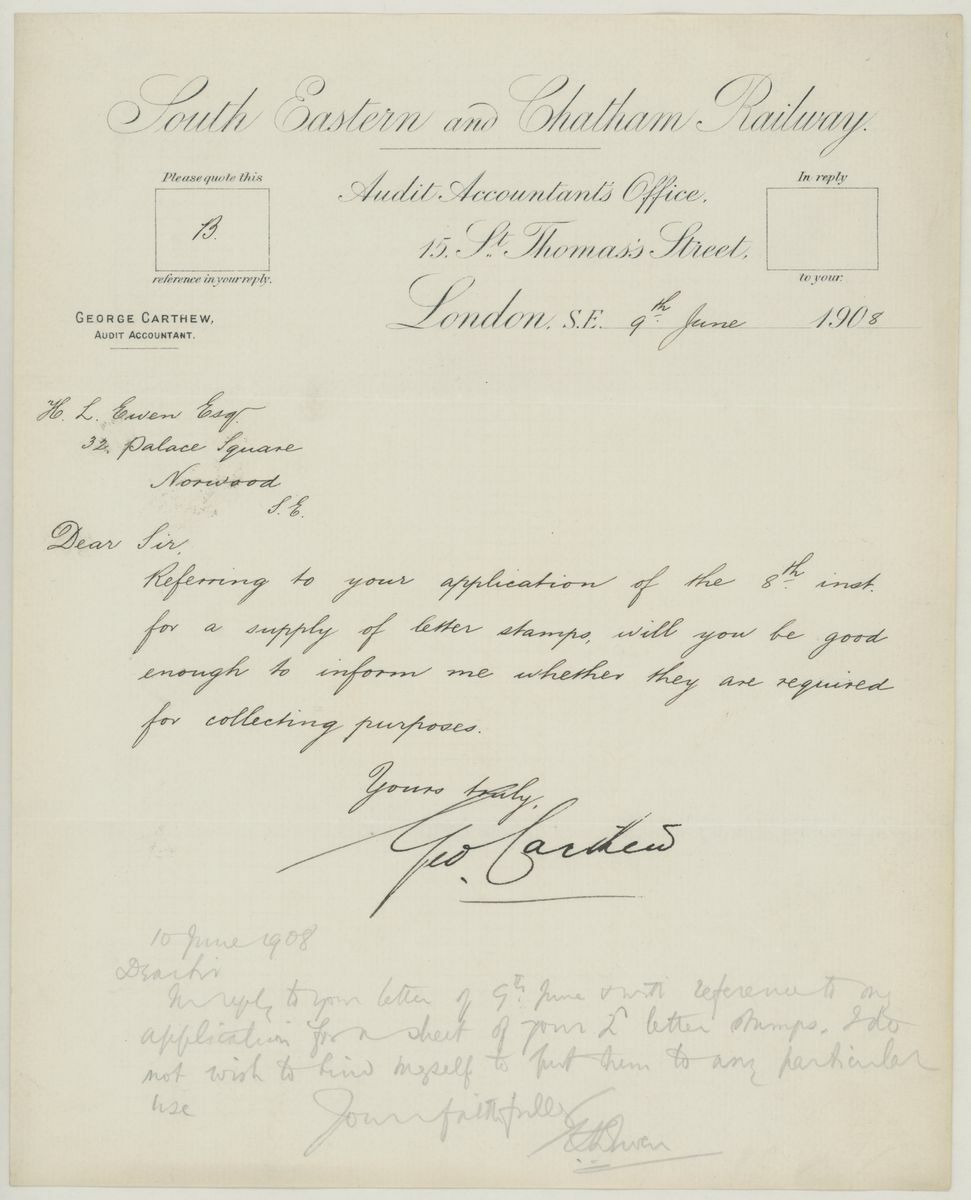 South Eastern and Chatham Railway.
Please quote this
B.
reference in your reply.
Audit Accountant's Office,
15, St. Thomas's Street,
In reply
to your:
GEORGE CARTHEW,
AUDIT ACCOUNTANT.
London, S.E. 9th June 1908
H. L. Ewen Esq.
32, Palace Square
Norwood
S.E.
Dear Sir,
Referring to your application of the 8th inst.
for a supply of letter stamps, will you be good
enough to inform me whether they are required
for collecting purposes.
Yours truly,
Geo. Carthew
10 June 1908
Dear Sir
In reply to your letter of 9th June & with reference to my
application for a sheet of your letter stamps. I do
not wish to bind myself to put them to any particular
use
Yours faithfully
Ewen